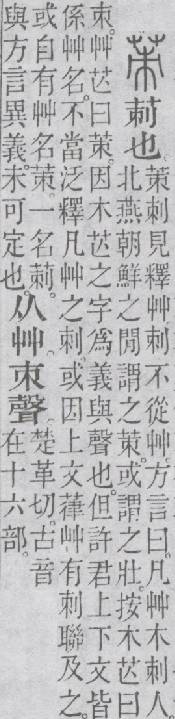 茦莿也。茦刺見釋艸。刺不從艸。方言曰。凡艸木刺人。
北燕朝鮮之閒謂之茦。或謂之壯。按木芒曰
朿。艸芒曰茦。因木芒之字爲義與聲也。但許君上下文皆
係艸名。不當泛釋凡艸之刺。或因上文葎艸有刺聯及之。
或自有艸名茦。一名莿。
與方言異義。未可定也。
从艸。朿聲。楚革切。古音
在十六部。